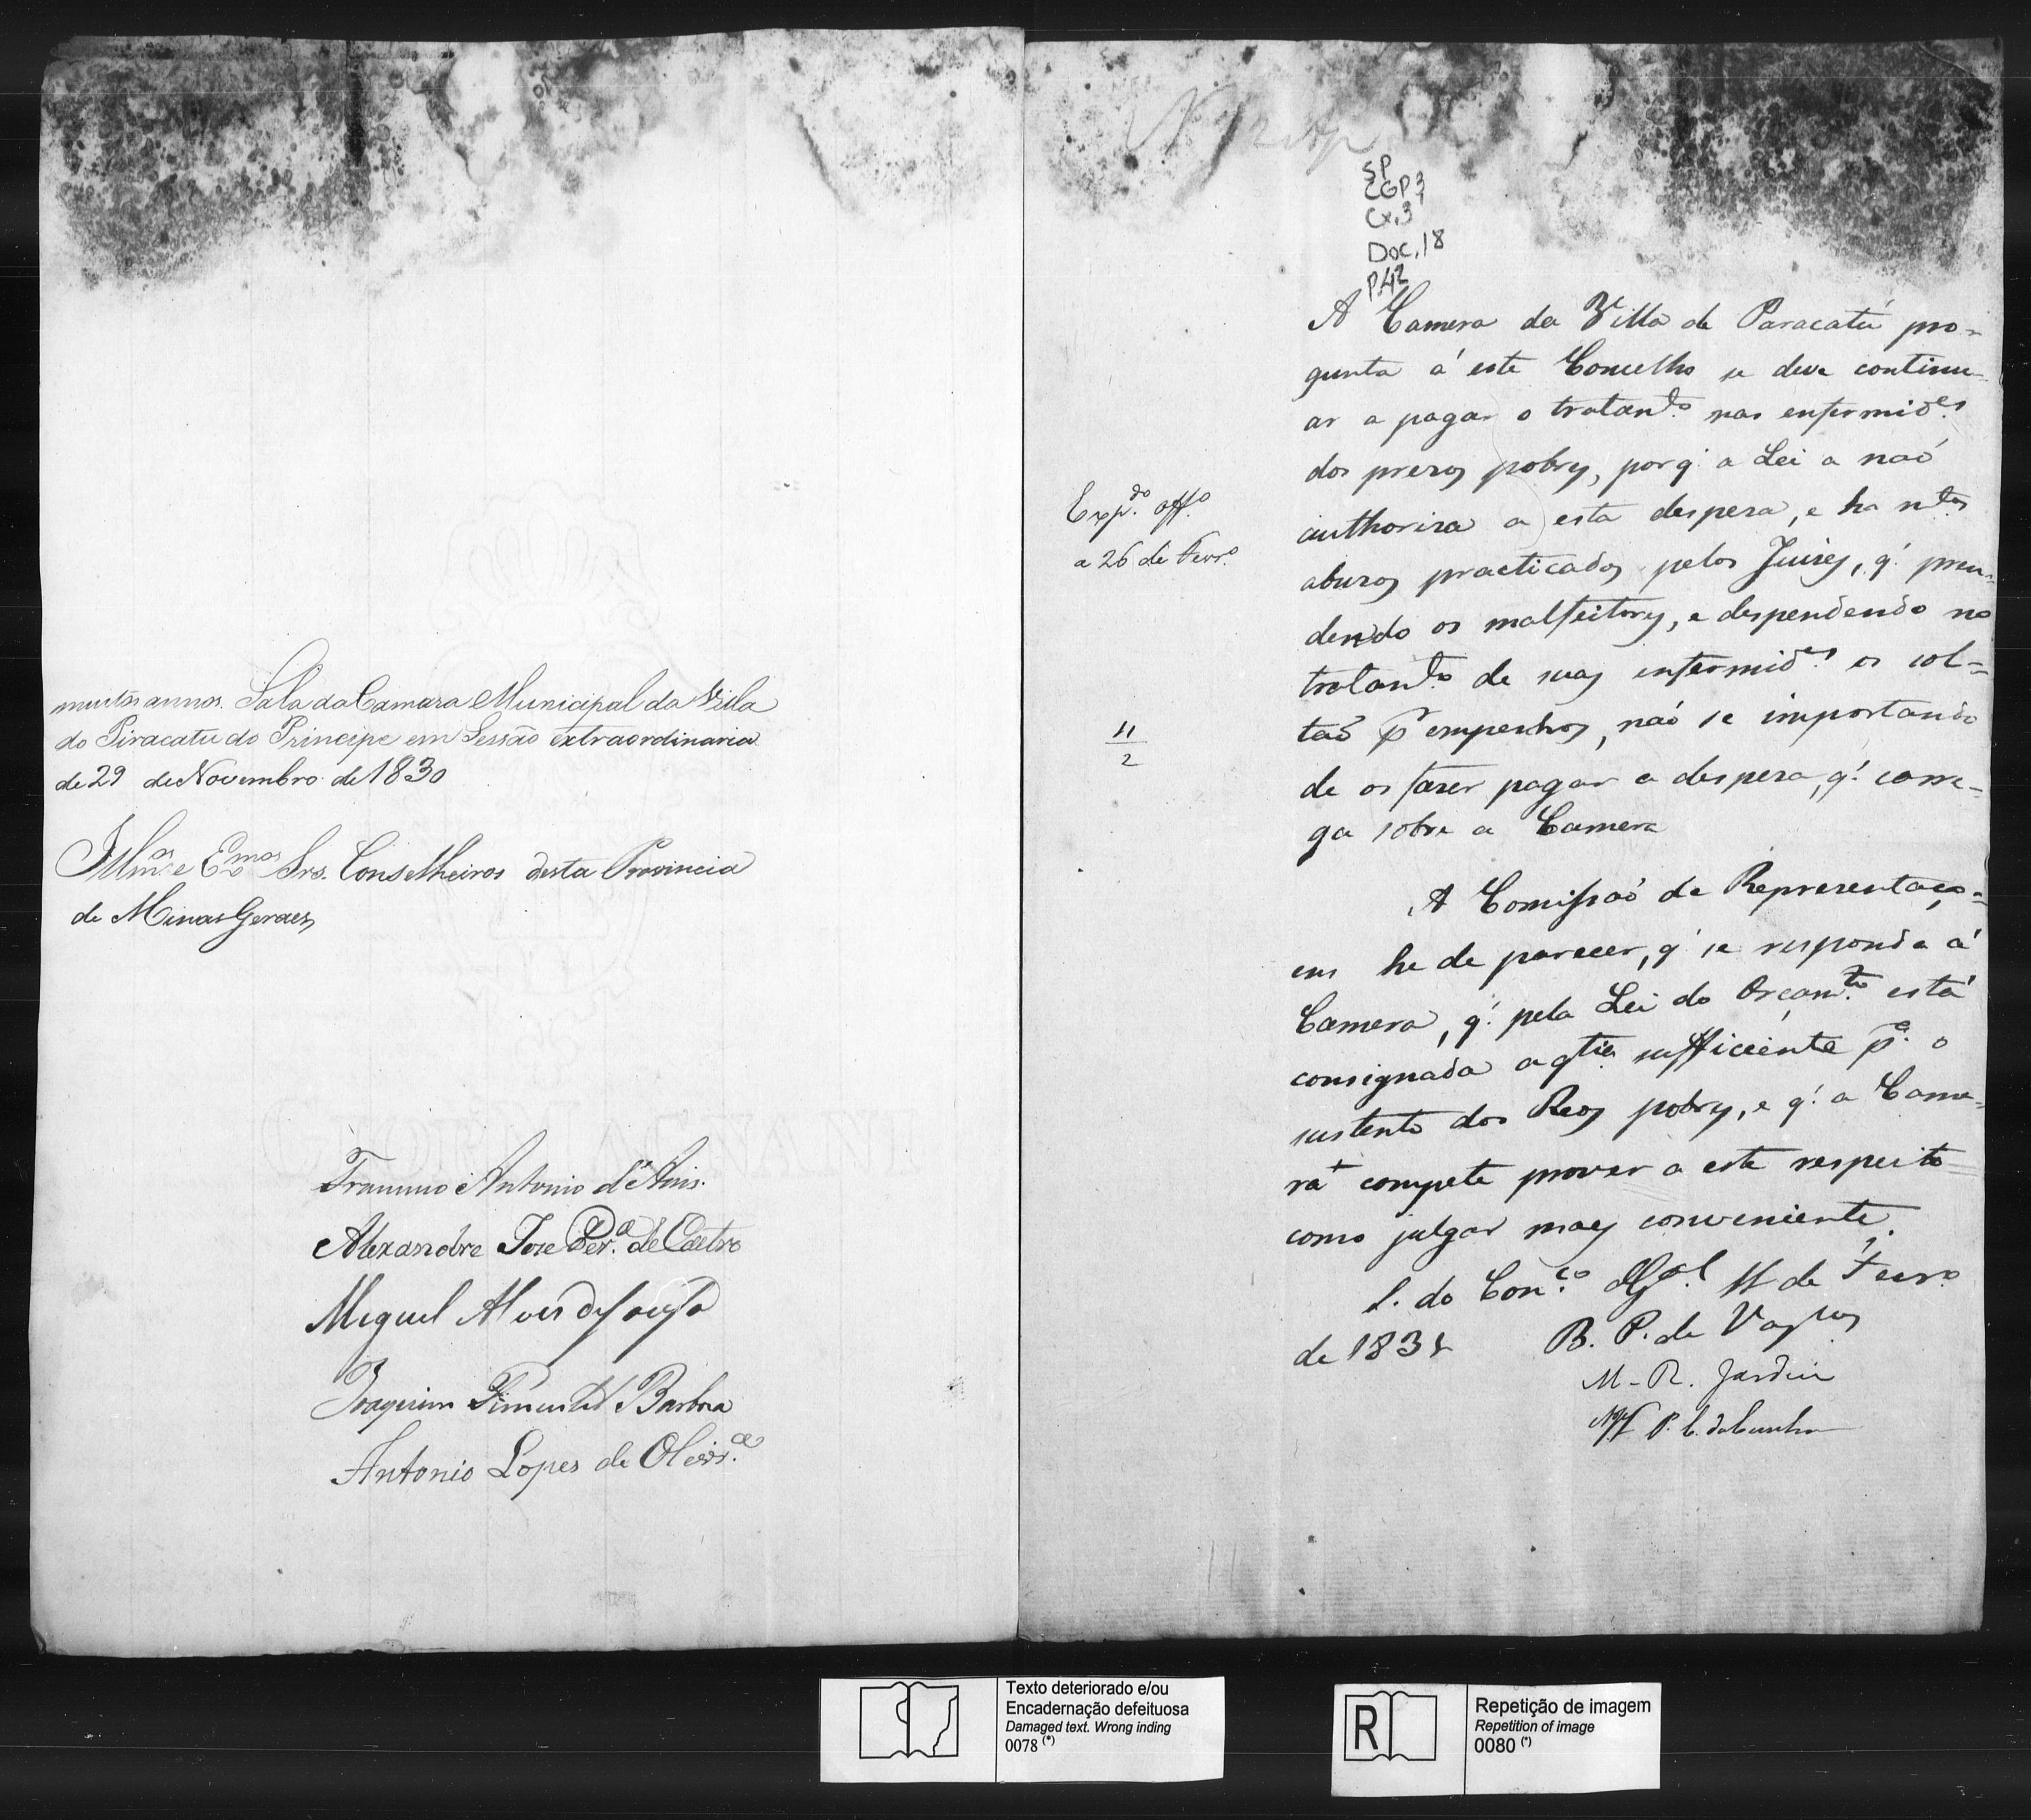 muitos annos. Sala da Camara Municipal da Villa
do Piracatu do Principe em Sessão extraordinaria
de 29 de Novembro de 1830
Illmos e Exmos Srs. Conselheiros desta Provincia
de Minas Geraes
Antonio d'Assis.
Alexandre Jose Per.ª de Castro
Miguel Alves de Souza
Joaquim Pimentel Barbosa
Antonio Lopes de Olivr.ª
SP
CGP 3
Cx.3
Doc.18
P.42
A Camera da Villa de Paracatú pro-
gunta á este Concelho se deve continu-
ar a pagar o tratam.to nas enfermid.es
dos prezos pobres, porq' a Lei a naõ
authoriza a esta despeza, e ha m.tos
abuzos practicados pelos Juizes, q' pren-
dendo os malfeitores, e despendendo no
tratam.to de suas enfermid.es os sol-
taõ p.r empenhos, naõ se importando
de os fazer pagar a despeza, q' carre-
ga sobre a Camera
Exp.do off.o
a 26 de Fevr.o
11
2
A Comissaõ de Representaço-
ens he de parecer, q' se responda á
Camera, q' pela Lei do Orçam.to está
consignada a q.tia sufficiente p.a o
sustento dos Reos pobres, e q' a Came-
ra compete prover a este respeito
como julgar mais conveniente.
S. do Con.co G.al 11 de Fevr.o
de 1831
B. P. de Vas.los
M. R. Jardim
P. C. da Cunha
Texto deteriorado e/ou
Encadernação defeituosa
Damaged text. Wrong inding
0078 (*)
R
Repetição de imagem
Repetition of image
0080 (*)